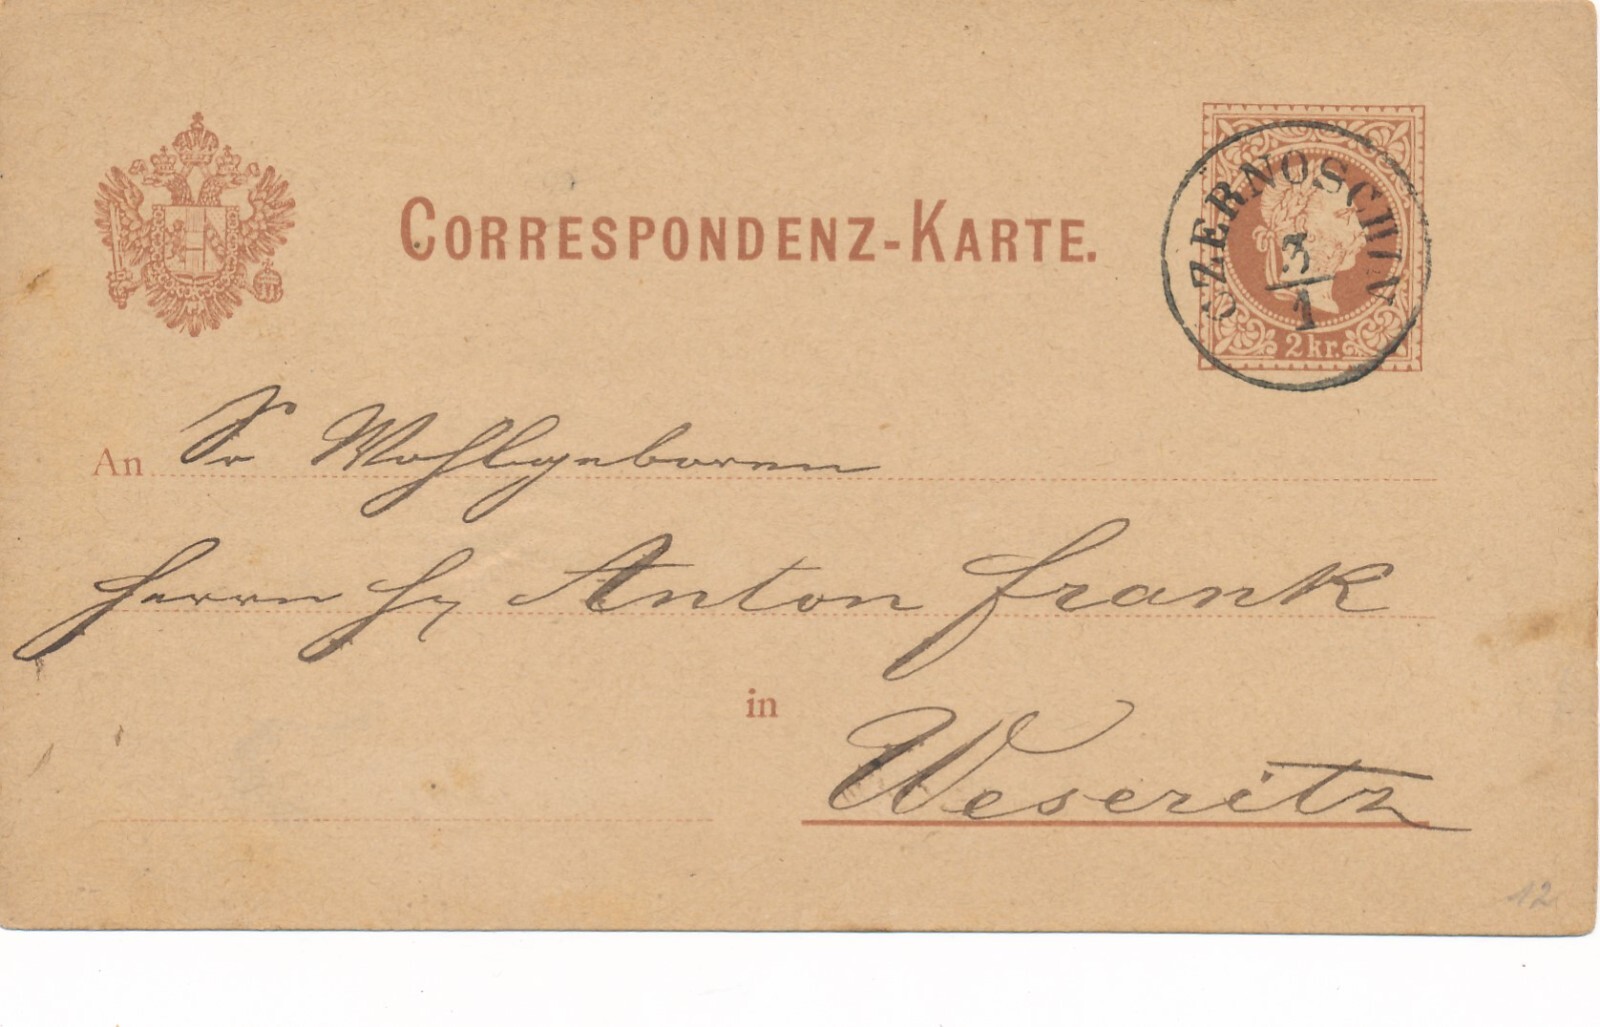 CORRESPONDENZ-KARTE.
CZERNOSCHIN
3
1
2 kr.
An Sr Wohlgeboren
Herrn Anton Frank
in
Weseritz
12